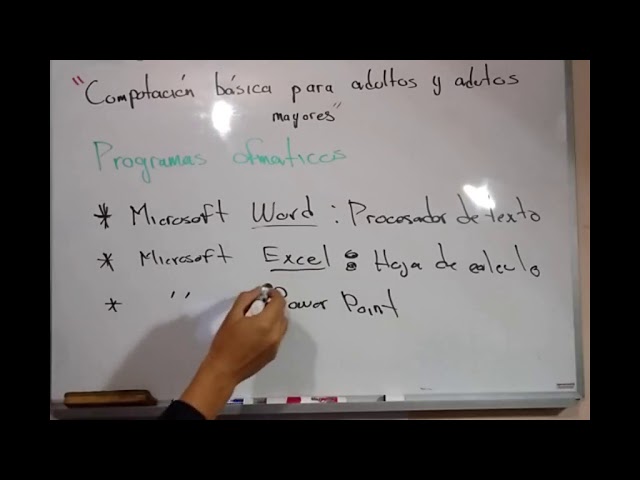 "Computación básica para adultos y adutos
mayores"
Programas ofmaticos
* Microsoft Word : Procesador de texto
* Microsoft Excel : Hoja de calculo
* " Power Point